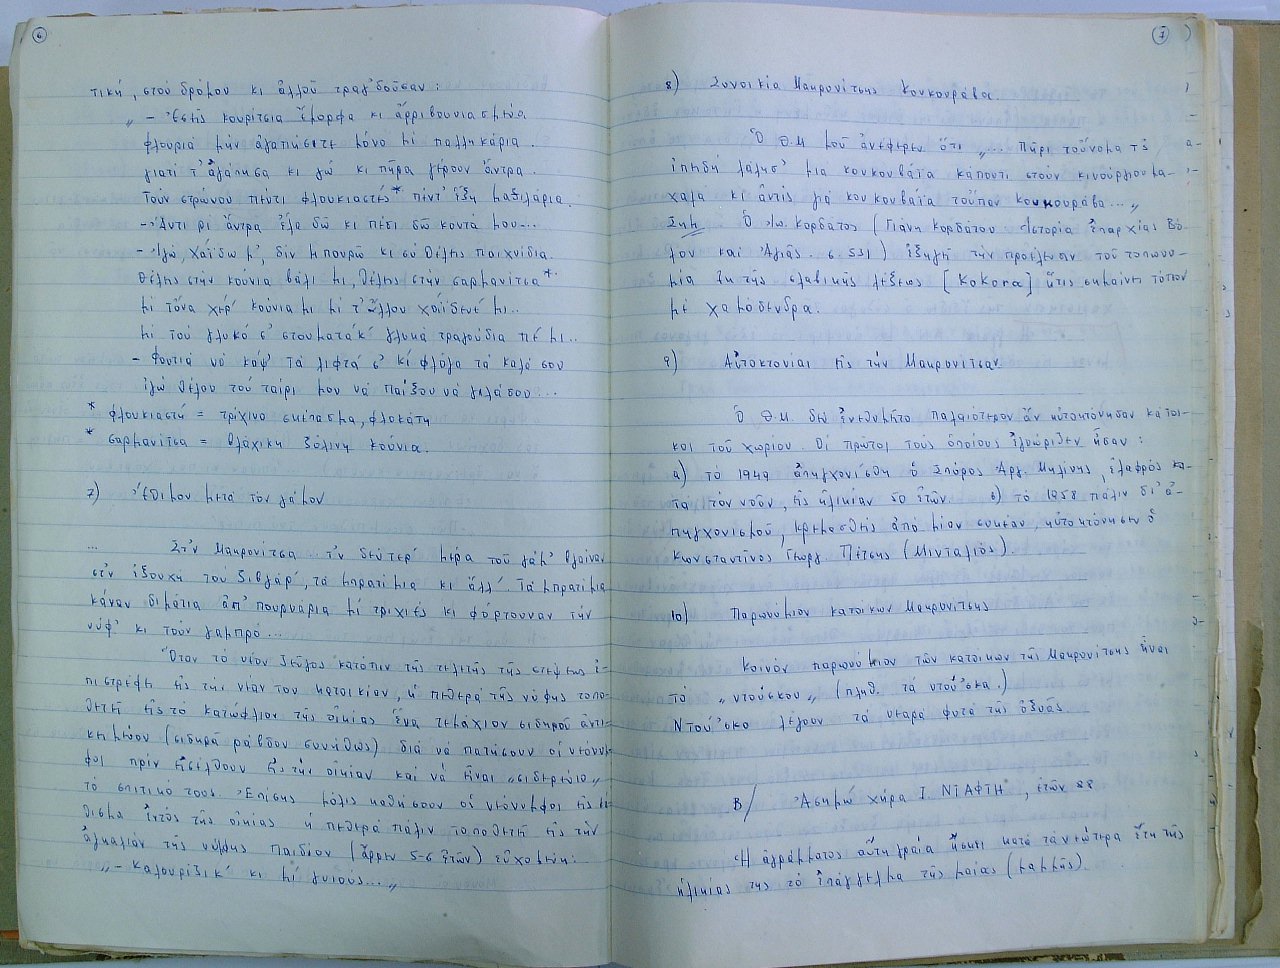 6
τική, στού δρόμου κι ἀλλοῦ τραγ'δοῦσαν:
„ - Ἐσεῖς κουρίτσια ἔμορφα κι ἀρριβουνιασμένα
φλουριά μήν ἀγαπήσετε μόνο μέ παλληκάρια.
γιατί τ' ἀγάπησα κι γώ κι πῆρα γέρουν ἄντρα.
Τούν στρώνου πέντι φλουκιαστές* πέντ' ἕξη μαξιλάρια.
- Ἄντι ρέ ἄντρα ἔλα δῶ κι πέσι δῶ κοντά μου...
- Ἰγώ, χαΐδω μ', δέν μπουρῶ κι σύ θέλης παιχνίδια.
θέλης στήν κούνια βάλι μι, θέλης στήν σαρμανίτσα*.
μέ τὄνα χέρ' κούνια μι μέ τ' ἄλλου χαΐδευέ μι..
μέ τού γλυκό σ' στουματάκ' γλυκά τραγούδια πέ μι..
- Φουτιά νά κάψ' τά λιφτά σ' κί φλόγα τά καλά σου
ἰγώ θέλου τού ταίρι μου νά παίξου νά γελάσου...
* φλουκιαστή = τρίχινο σκέπασμα, φλοκάτη
* σαρμανίτσα = βλάχικη ξύλινη κούνια.
7) Ἔθιμον μετά τόν γάμον
... Στ'ν Μακρυνίτσα.. τ'ν δεύτερ' μέρα τοῦ γάμ' βγαίναν
στ'ν ἐξουχή τού ζιβγάρ', τά μπρατίμια κι ἄλλ'. Τά μπρατίμια
κάναν διμάτια ἀπ' πουρνάρια μέ τριχιές κί φόρτουναν τήν
νύφ' κι τούν γαμπρό...
Ὅταν τό νέον ζεῦγος κατόπιν τῆς τελετῆς τῆς στέψεως ἐ-
πιστρέφει εἰς τήν νέαν του κατοικίαν, ἡ πεθερά τῆς νύφης τοπο-
θετεῖ εἰς τό κατώφλιον τῆς οἰκίας ἕνα τεμάχιον σιδηροῦ ἀντι-
κειμένου (σιδηρᾶ ράβδον συνήθως) διά νά πατήσουν οἱ νεόνυμ-
φοι πρίν εἰσέλθουν εἰς τήν οἰκίαν καί νά εἶναι „σιδερένιο„
τό σπιτικό τους. Ἐπίσης μόλις καθήσουν οἱ νεόνυμφοι εἰς κά-
θισμα ἐντός τῆς οἰκίας ἡ πεθερά πάλιν τοποθετεῖ εἰς τήν
ἀγκαλιάν τῆς νύφης παιδίον (ἄρρεν 5-6 ἐτῶν) εὐχομένη:
„ - Καλουρίζικ' κι μέ γυιούς...„
7
8) Συνοικία Μακρυνίτσης Κουκουράβα.
Ὁ Θ.Μ. μοῦ ἀνέφερεν ὅτι „... Πῆρι τοὔνομα τ'ς
ἐπηδή λάλησ' μιά κουκουβάϊα κάπουτι στούν κινούργιου μα-
χαλά κί ἀντίς γιά κουκουβάϊα τοὖπαν Κουκουράβα...„
Σημ. Ὁ Ἰω. Κορδάτος (Γιάνη Κορδάτου Ἱστορία Ἐπαρχίας Βό-
λου καί Ἁγιᾶς. σ. 531) ἐξηγεῖ τήν προέλευσιν τοῦ τοπωνυ-
μία ἐκ τῆς σλαβικῆς λέξεως [Kokora] ἥτις σημαίνει τόπον
μέ χαμόδενδρα.
9) Αὐτοκτονίαι εἰς τήν Μακρυνίτσαν.
Ὁ Θ.Μ. δέν ἐνεθυμεῖτο παλαιότερον ἄν ηὐτοκτόνησαν κάτοι-
κοι τοῦ χωρίου. Οἱ πρῶτοι τούς ὁποίους ἐγνώριζεν ἦσαν:
α) τό 1949 ἀπηγχονίσθη ὁ Σπύρος Ἀργ. Μηλίνης, ἐλαφρός κα-
τά τόν νοῦν, εἰς ἡλικίαν 50 ἐτῶν. β) τό 1958 πάλιν δι' ἀ-
παγχονισμοῦ, κρεμασθείς ἀπό μίαν συκέαν, ηὐτοκτόνησεν ὁ
Κωνσταντῖνος Γεωργ. Πέτσης (Μινταλιός)
10) Παρωνύμιον κατοίκων Μακρυνίτσης
Κοινόν παρωνύμιον τῶν κατοίκων τῆς Μακρυνίτσης εἶναι
τό „ντούσκου„ (πληθ. τά ντού'σκα.)
Ντού'σκο λέγουν τά νεαρά φυτά τῆς ὀξυᾶς.
Β/ Ἀσημώ χήρα Ι. ΝΤΑΦΤΗ, ἐτῶν 88
Ἡ ἀγράμματος αὕτη γραῖα ἤσκει κατά τά νεώτερα ἔτη τῆς
ἡλικίας της τό ἐπάγγελμα τῆς μαίας (μαμμῆς).